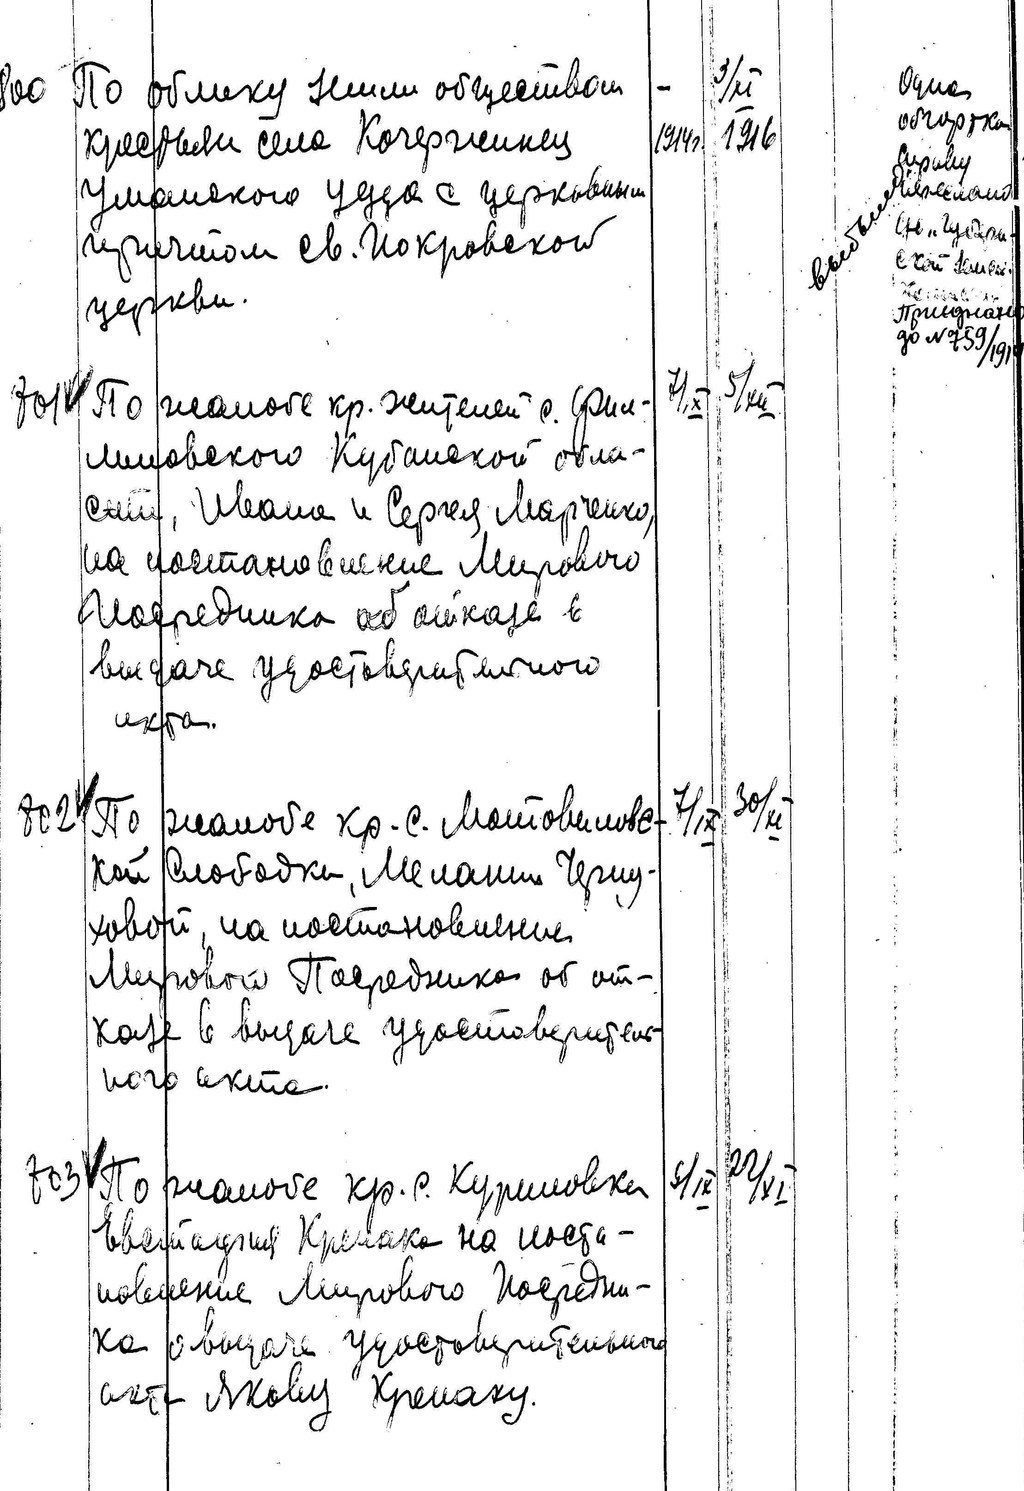 800 По обмену земли обществом - 3/XI
крестьян села Кочержинец 1914г. 1916
Уманского уезда с церковным
причтом св. Покровской
церкви.
выбыл
Одна
обгортка
Справу
до №759/191
701 По жалобе кр. жителей с. Фил- 7/IX 5/XII
лимовского Кубанской обла-
сти, Ивана и Сергея Марченко,
на постановление Мирового
Посредника об отказе в
выдаче удостоверительного
акта.
802 По жалобе кр. с. Мотовиловс- 7/IX 30/XI
кой Слободки, Мелании Черну-
ховой, на постановление
Мирового Посредника об от-
казе в выдаче удостоверитель-
ного акта.
703 По жалобе кр. с. Куриловки 5/IX 22/XI
Евстафия Крепака на поста-
новление Мирового Посредни-
ка о выдаче удостоверительного
акта Якову Крепаку.